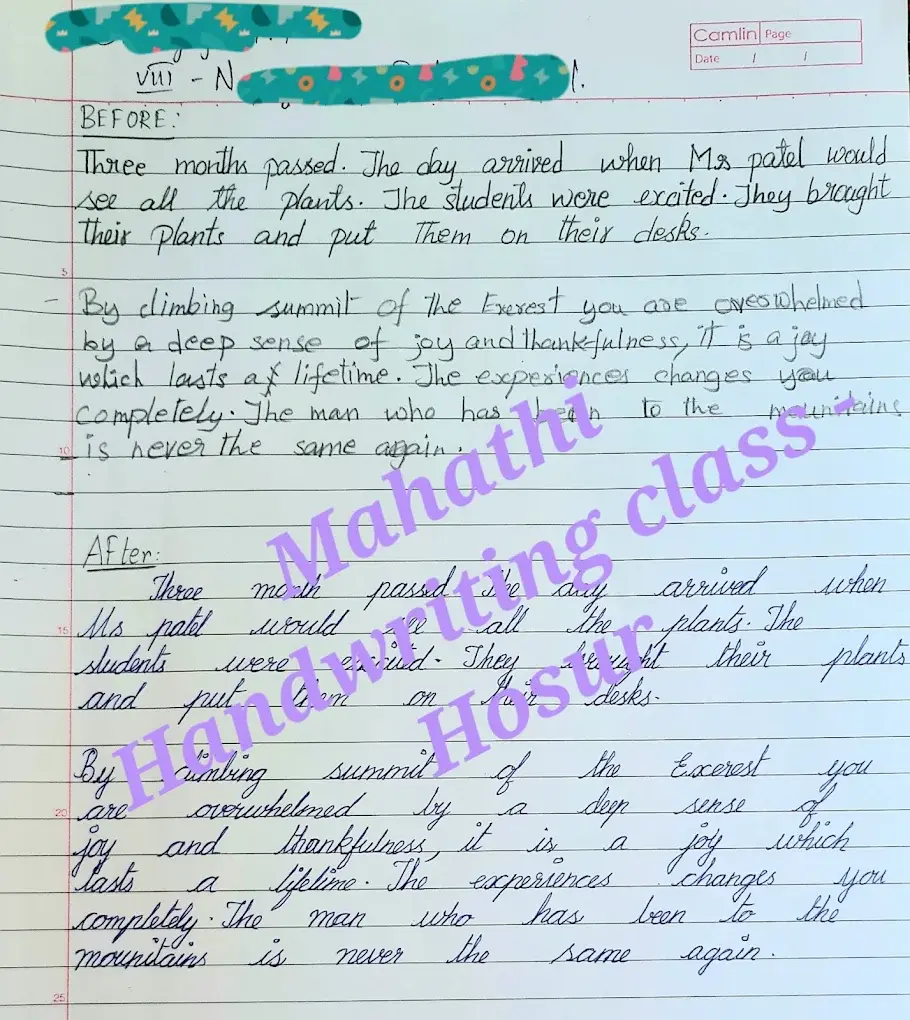 Camlin Page
Date / /
VIII - N
BEFORE:
Three months passed. The day arrived when Ms patel would
see all the plants. The students were excited. They brought
their plants and put Them on their desks.
5
- By climbing summit of the Exerest you are overwhelmed
by a deep sense of joy and thankfulness, it is a joy
which lasts a lifetime. The experiences changes you
completely. The man who has been to the mounitains
10 is never the same again.
After:
Three month passd. The day arrived when
15 Ms patel would see all the plants. The
students were excited. They brought their plants
and put them on their desks.
By climbing summit of the Excerest you
20 are overwhelmed by a deep sense of
joy and thankfulness, it is a joy which
lasts a lifetime. The experiences changes you
completely. The man who has been to the
mounitains is never the same again.
25
Mahathi
Handwriting class -
Hosur